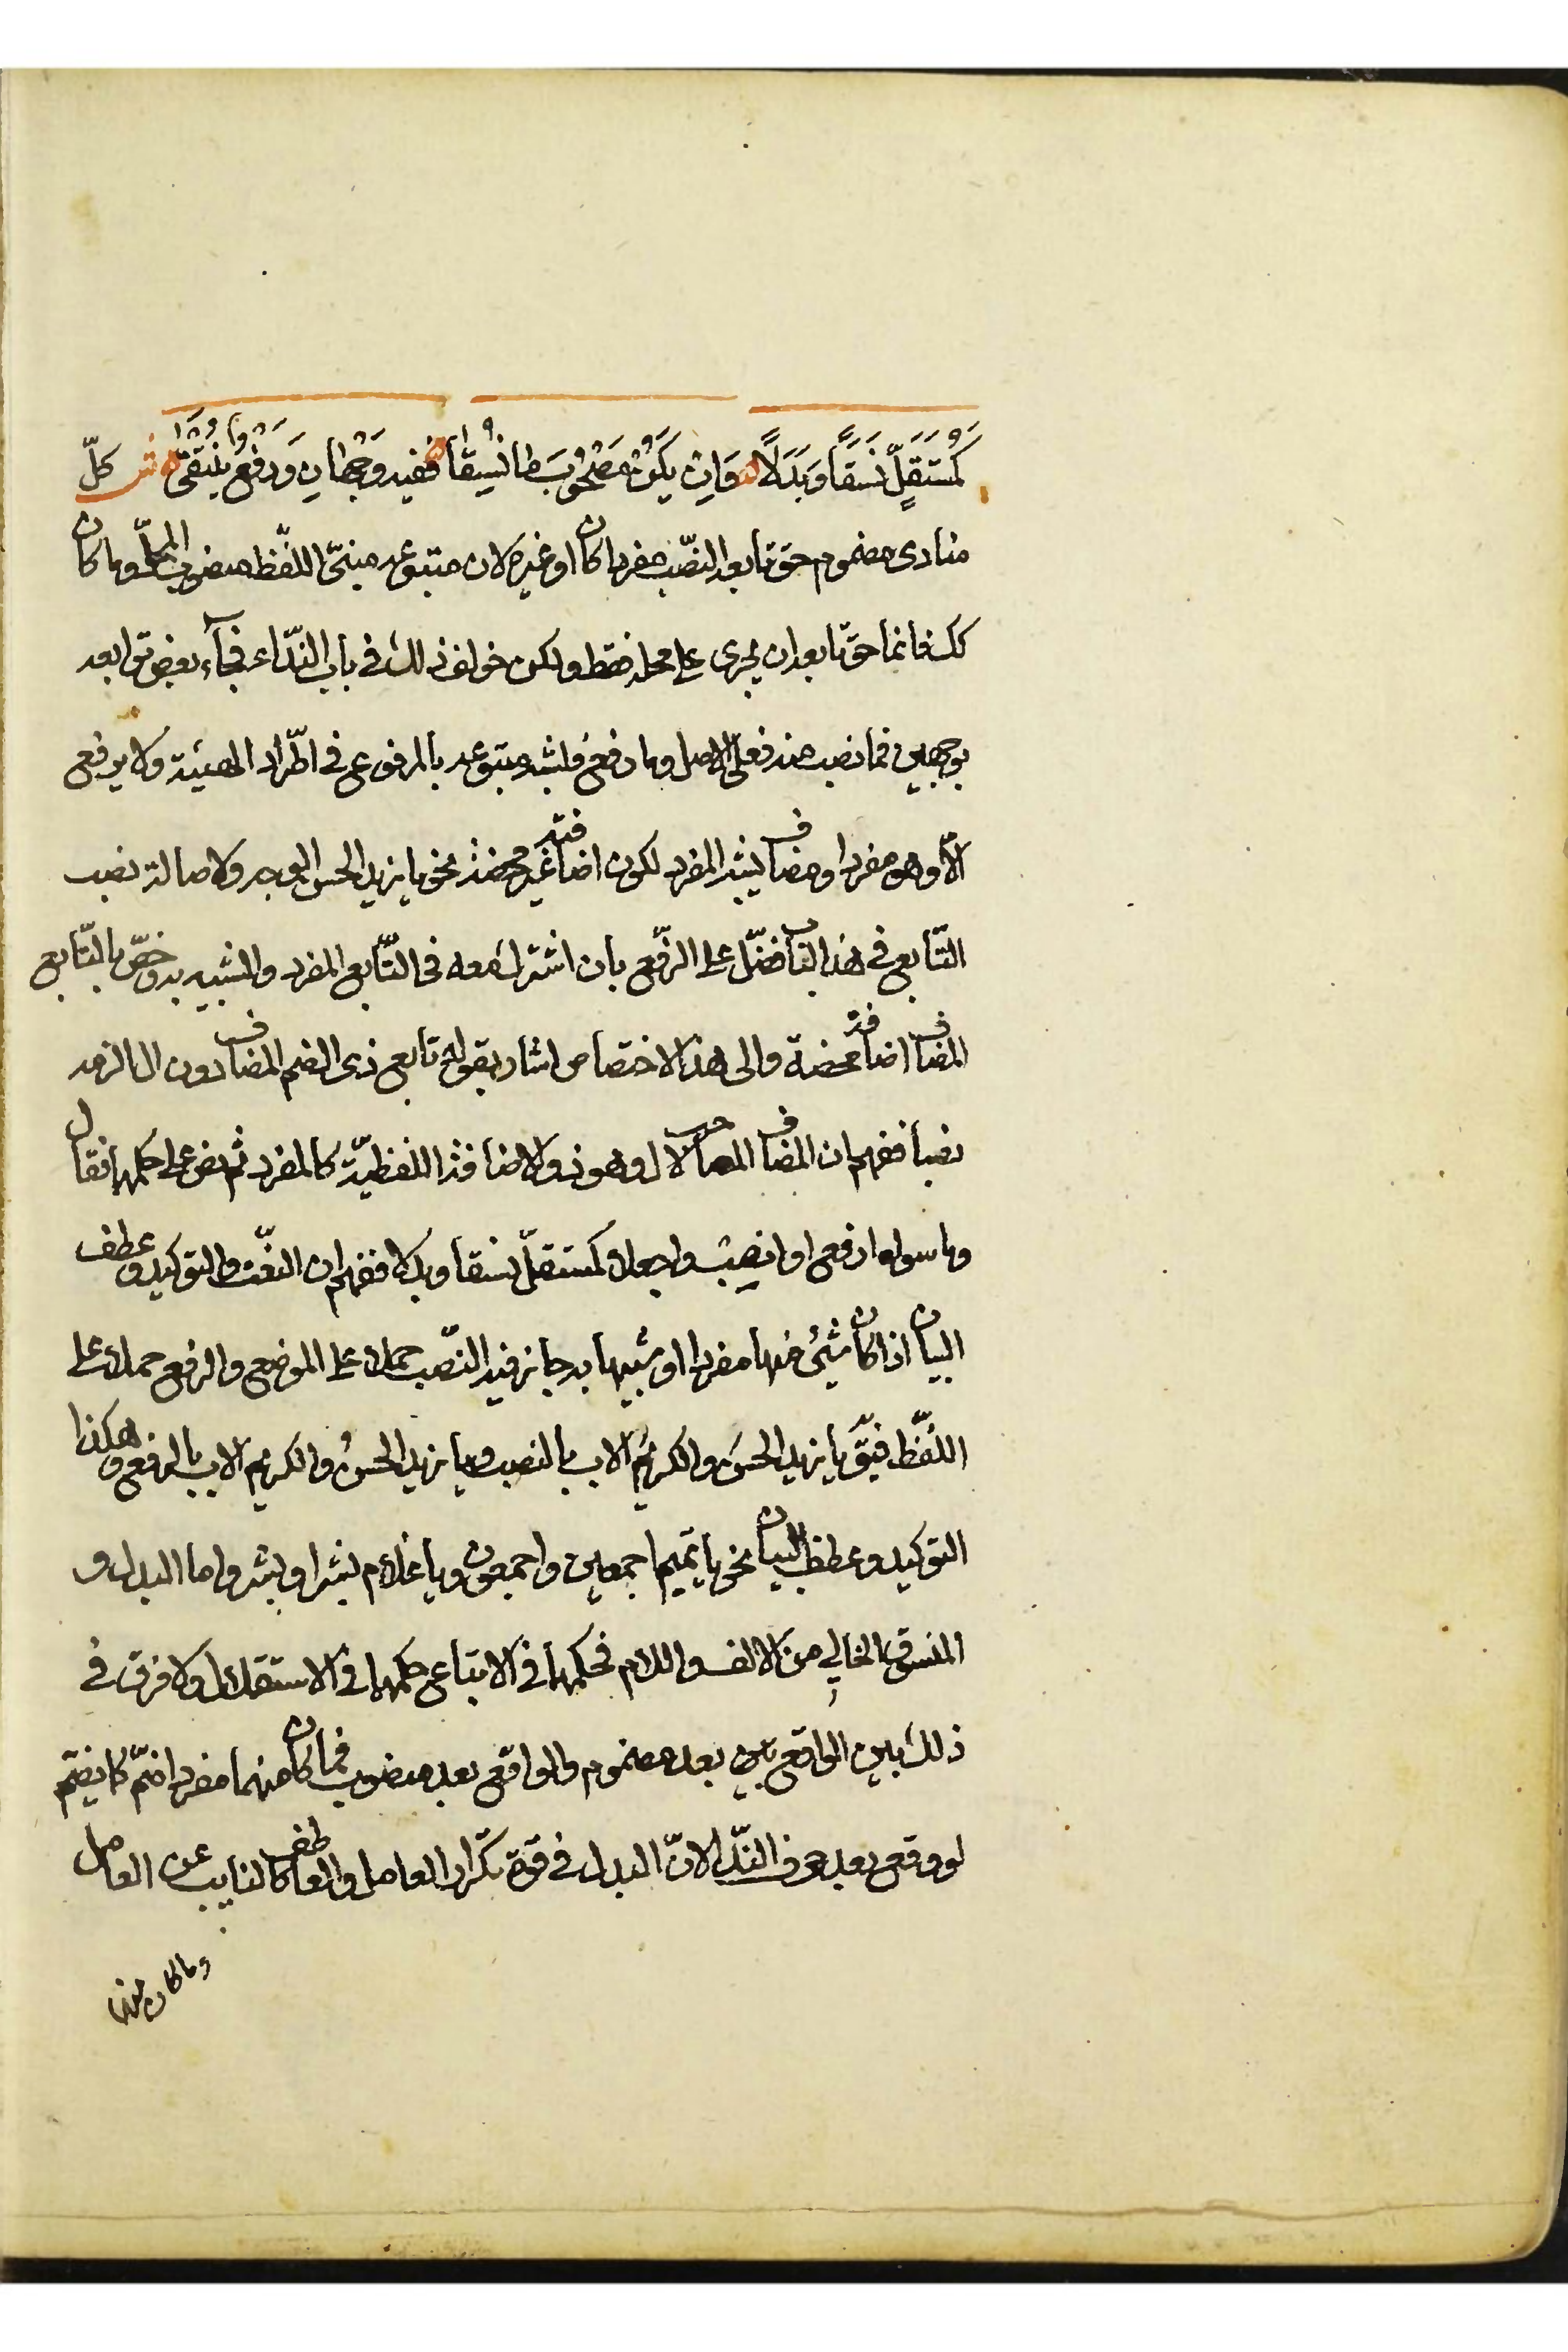 كَمُسْتَقِلٍّ نَسَقًا وَبَدَلًا وَاِنْ يَكُنْ مَصْحُوْبَ مَا نُسِقَا فَفِيهِ وَجْهَانِ وَرَفْعٌ يُنْتَقَىٰ ش كلّ
منادى مضموم حق تابعه النصّب مفردا كان او غيره لان متبوعه مبنىّ اللفّظ منصوب المحلّ وما كان
كك فانما حق تابعه ان يجرى على محله فقط ولكن خولف ذلك فى باب النّداء فجآء بعض توابعه
بوجهين فما نصب منه فعلى الاصل وما رفع فلشبه متبوعه بالمرفوع فى اطّراد الهيئة ولا يرفع
الّا وهو مفرد او مضاف يشبه المفرد لكون اضافته غير محضة نحو يا زيد الحسن الوجه ولاصالة نصب
التّابع فى هذا الباب فضّل على الرّفع بان اشترك معه فى التّابع المفرد والشبيه به وخصّ بالتّابع
المضاف اضافة محضة والى هذا الاختصاص اشار بقوله تابع ذى الضم المضاف دون ال الزمه
نصبا ففهم ان المضاف المصاحب لال وهو ذو الاضافة اللفظيّة كالمفرد ثم نص على حكمهما فقال
وما سواه ارفع او انصب واجعلا كمستقلّ نسقا وبدلا ففهم ان النعّت والتوكيد وعطف
البيان اذا كان شئ منها مفردا او شبيها به جاز فيه النصّب حملا على الموضع والرفع حملا على
اللفّظ فيقّ يا زيد الحسنَ والكريمَ الاب بالنصب ويا زيد الحسنُ والكريم الاب بالرفع وهكذا
التوكيد وعطف البيان نحو يا تميم اجمعين واجمعون ويا غلام بشرا وبشر واما البدل و
المنسوق الخالى من الالف واللام فحكمهما فى الاتباع حكمهما فى الاستقلال ولا فرق فى
ذلك بين الواقع بين بعد مضموم والواقع بعد منصوب فما كان منهما مفردا ضمّ كما يضمّ
لو وقع بعد حرف النّدا لانّ البدل فى قوة تكرار العامل والعاطف كالنايب عن العامل
وما كان منهما